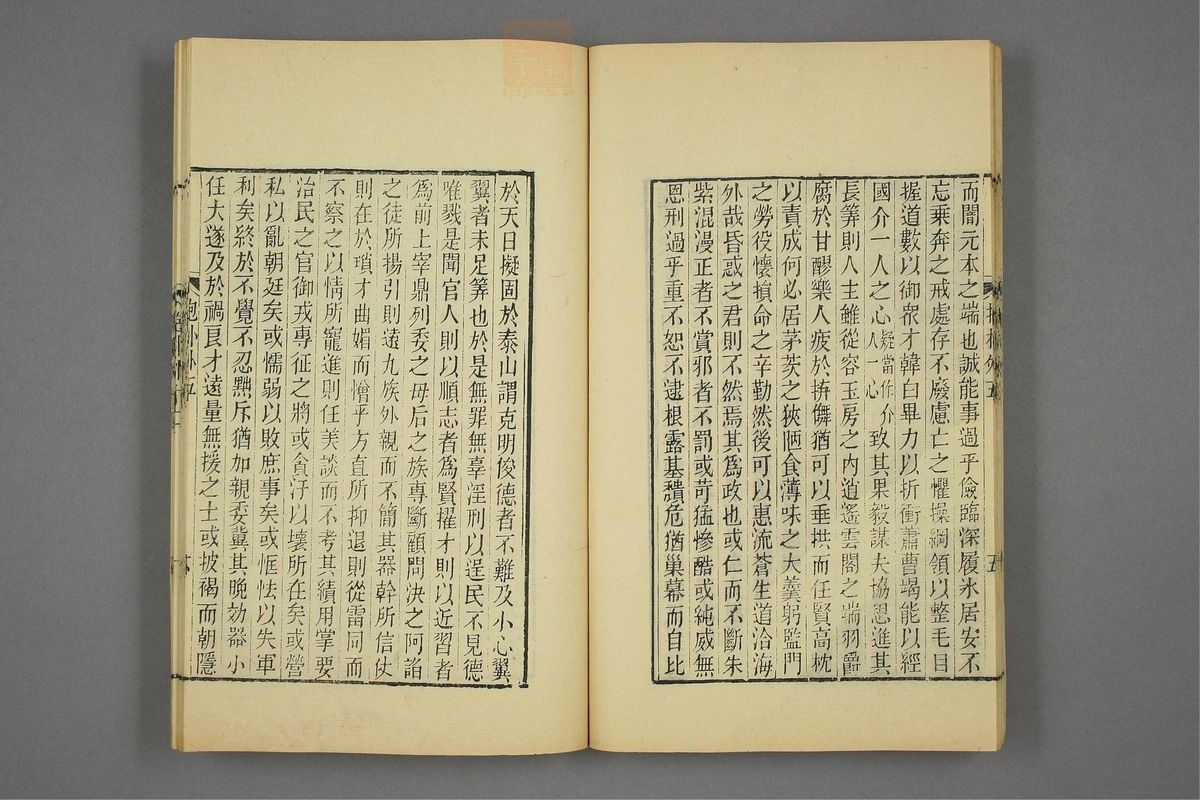 而闇元本之端也誠能事過乎儉臨深履冰居安不
忘乘奔之戒處存不廢慮亡之懼操綱領以整毛目
握道數以御眾才韓白畢力以折衝蕭曹竭能以經
國介一人之心疑當作介人一心致其果毅謀夫協思進其
長筭則人主雖從容玉房之內逍遙雲閣之端羽爵
腐於甘醪樂人疲於拚儛猶可以垂拱而任賢高枕
以責成何必居茅茨之狹陋食薄味之大羹躬監門
之勞役懷損命之辛勤然後可以惠流蒼生道洽海
外哉昏惑之君則不然焉其爲政也或仁而不斷朱
紫混漫正者不賞邪者不罰或苛猛慘酷或純威無
恩刑過乎重不恕不逮根露基穨危猶巢幕而自比
五
於天日擬固於泰山謂克明俊德者不難及小心翼
翼者未足筭也於是無罪無辜淫刑以逞民不見德
唯戮是聞官人則以順志者爲賢擢才則以近習者
爲前上宰鼎列委之母后之族專斷顧問決之阿諂
之徒所揚引則遠九族外親而不簡其器幹所信仗
則在於瑣才曲媚而憎乎方直所抑退則從雷同而
不察之以情所寵進則任美談而不考其績用掌要
治民之官御戎專征之將或貪汙以壞所在矣或營
私以亂朝廷矣或懦弱以敗庶事矣或恇怯以失軍
利矣終於不覺不忍黜斥猶加親委冀其晚効器小
任大遂及於禍良才遠量無援之士或披褐而朝隱